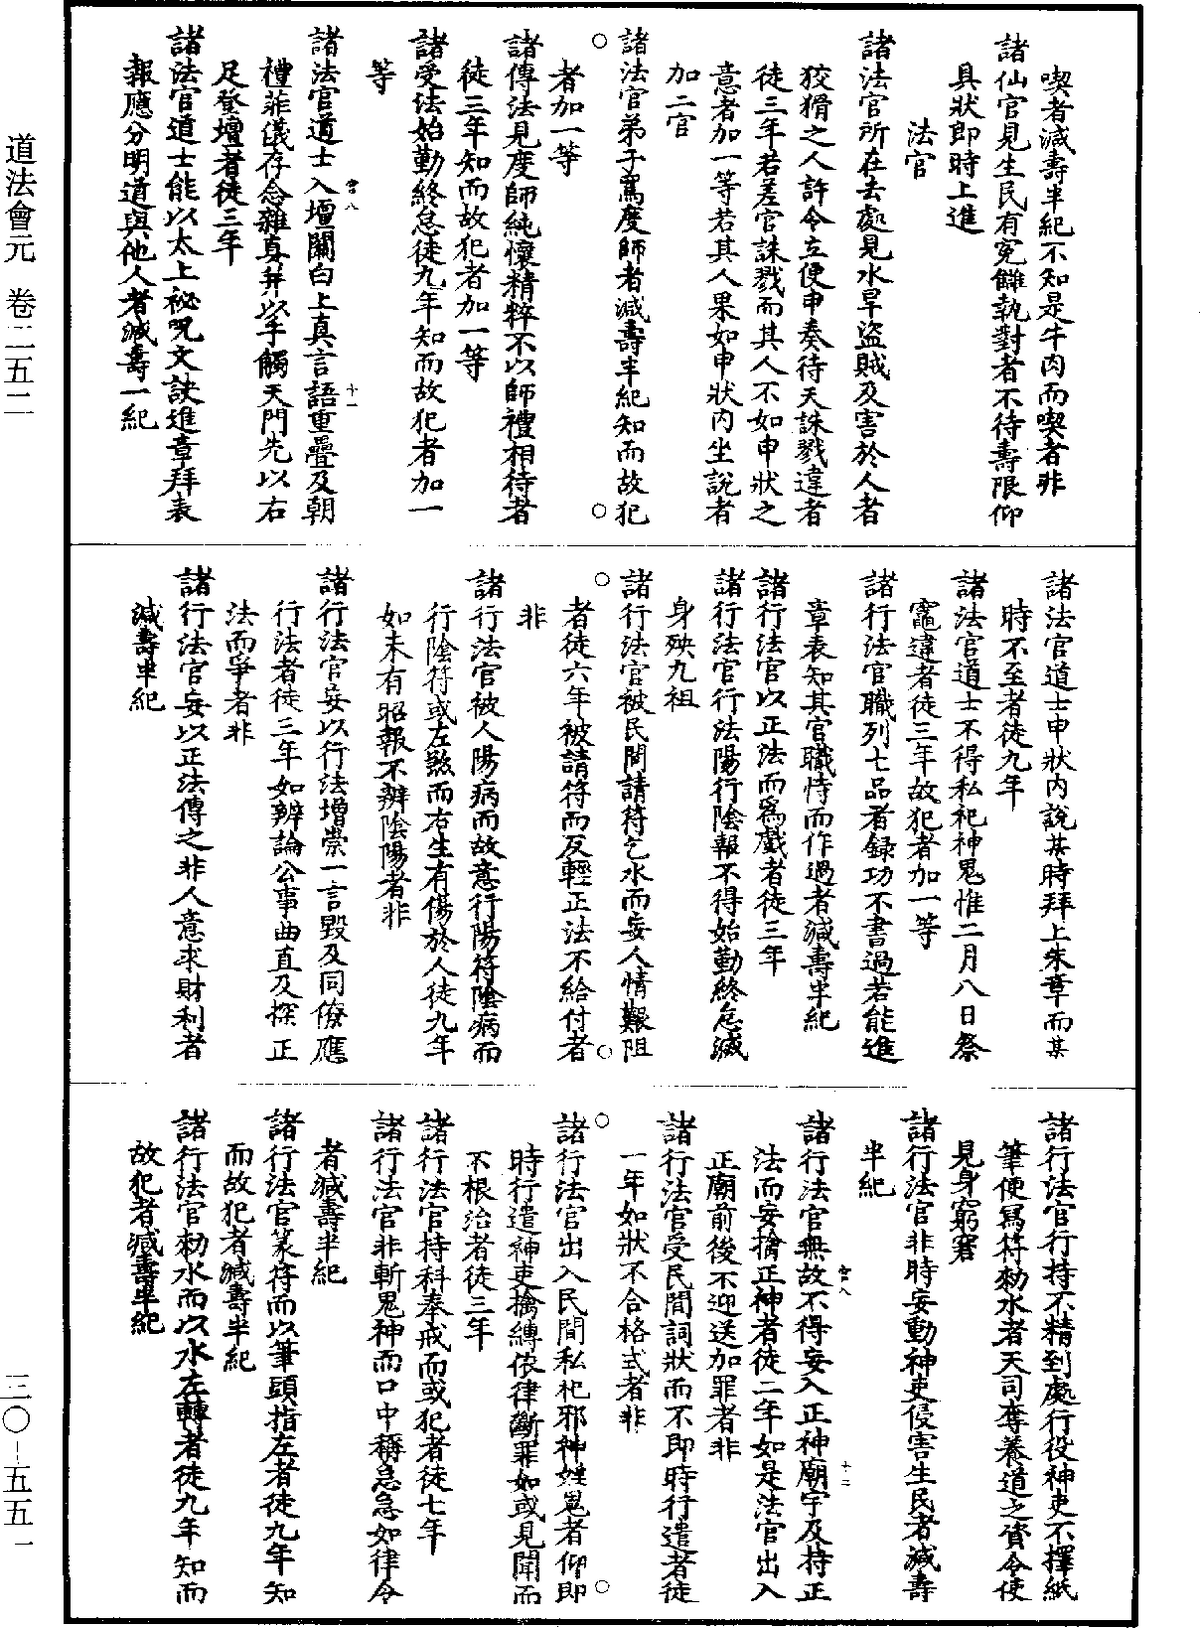 喫者減壽半紀不知是牛肉而喫者非
諸仙官見生民有冤讎執對者不待壽限仰
具狀即時上進
法官
諸法官所在去處見水旱盜賊及害於人者
狡猾之人許令立便申奏待天誅戮違者
徒三年若差官誅戮而其人不如申狀之
意者加一等若其人果如申狀內坐說者
加二官
諸法官弟子罵度師者減壽半紀知而故犯
者加一等
諸傳法見度師純懷精粹不以師禮相待者
徒三年知而故犯者加一等
諸受法始勤終怠徒九年知而故犯者加一
等
諸法官道士入壇關白上真言語重疊及朝
禮菲儀存念雜真并以手觸天門先以右
足登壇者徒三年
諸法官道士能以太上祕呪文訣進章拜表
報應分明道與他人者減壽一紀
諸法官道士申狀內說某時拜上朱章而某
時不至者徒九年
諸法官道士不得私祀神鬼惟二月八日祭
竈違者徒三年故犯者加一等
諸行法官職列七品者錄功不書過若能進
章表知其官職恃而作過者減壽半紀
諸行法官以正法而爲戲者徒三年
諸行法官行法陽行陰報不得始勤終怠減
身殃九祖
諸行法官被民間請符乞水而妄人情艱阻
者徒六年被請符而反輕正法不給付者
非
諸行法官被人陽病而故意行陽符陰病而
行陰符或左煞而右生有傷於人徒九年
如未有昭報不辨陰陽者非
諸行法官妄以行法增崇一言毀及同僚應
行法者徒三年如辨論公事曲直及探正
法而爭者非
諸行法官妄以正法傳之非人意求財利者
減壽半紀
諸行法官行持不精到處行役神吏不擇紙
筆便寫符勑水者天司奪養道之資令使
見身窮窘
諸行法官非時妄動神吏侵害生民者減壽
半紀
諸行法官無故不得妄入正神廟宇及持正
法而妄擒正神者徒二年如是法官出入
正廟前後不迎送加罪者非
諸行法官受民間詞狀而不即時行遣者徒
一年如狀不合格式者非
諸行法官出入民間私祀邪神婬鬼者仰即
時行遣神吏擒縛依律斷罪如或見聞而
不根治者徒三年
諸行法官持科奉戒而或犯者徒七年
諸行法官非斬鬼神而口中稱急急如律令
者減壽半紀
諸行法官篆符而以筆頭指左者徒九年知
而故犯者減壽半紀
諸行法官勑水而以水左轉者徒九年知而
故犯者減壽半紀
道法會元 卷二五二
三〇—五五一